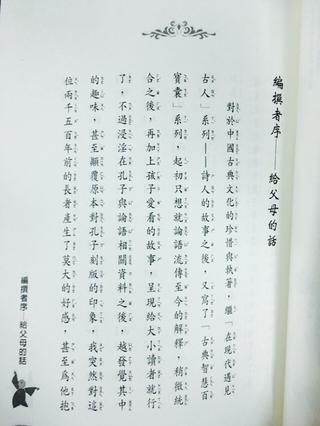 編撰者序——給父母的話
對於中國古典文化的珍惜與執著，繼「在現代遇見
古人」系列——詩人的故事之後，又寫了「古典智慧百
寶囊」系列，起初只想就論語流傳至今的解釋，稍微統
合之後，再加上孩子愛看的故事，呈現給大小讀者就行
了，不過浸淫在孔子與論語相關資料之後，越發覺其中
的趣味，甚至顛覆原本對孔子刻版的印象，我突然對這
位兩千五百年前的長者產生了莫大的好感，甚至為他抱
編撰者序——給父母的話